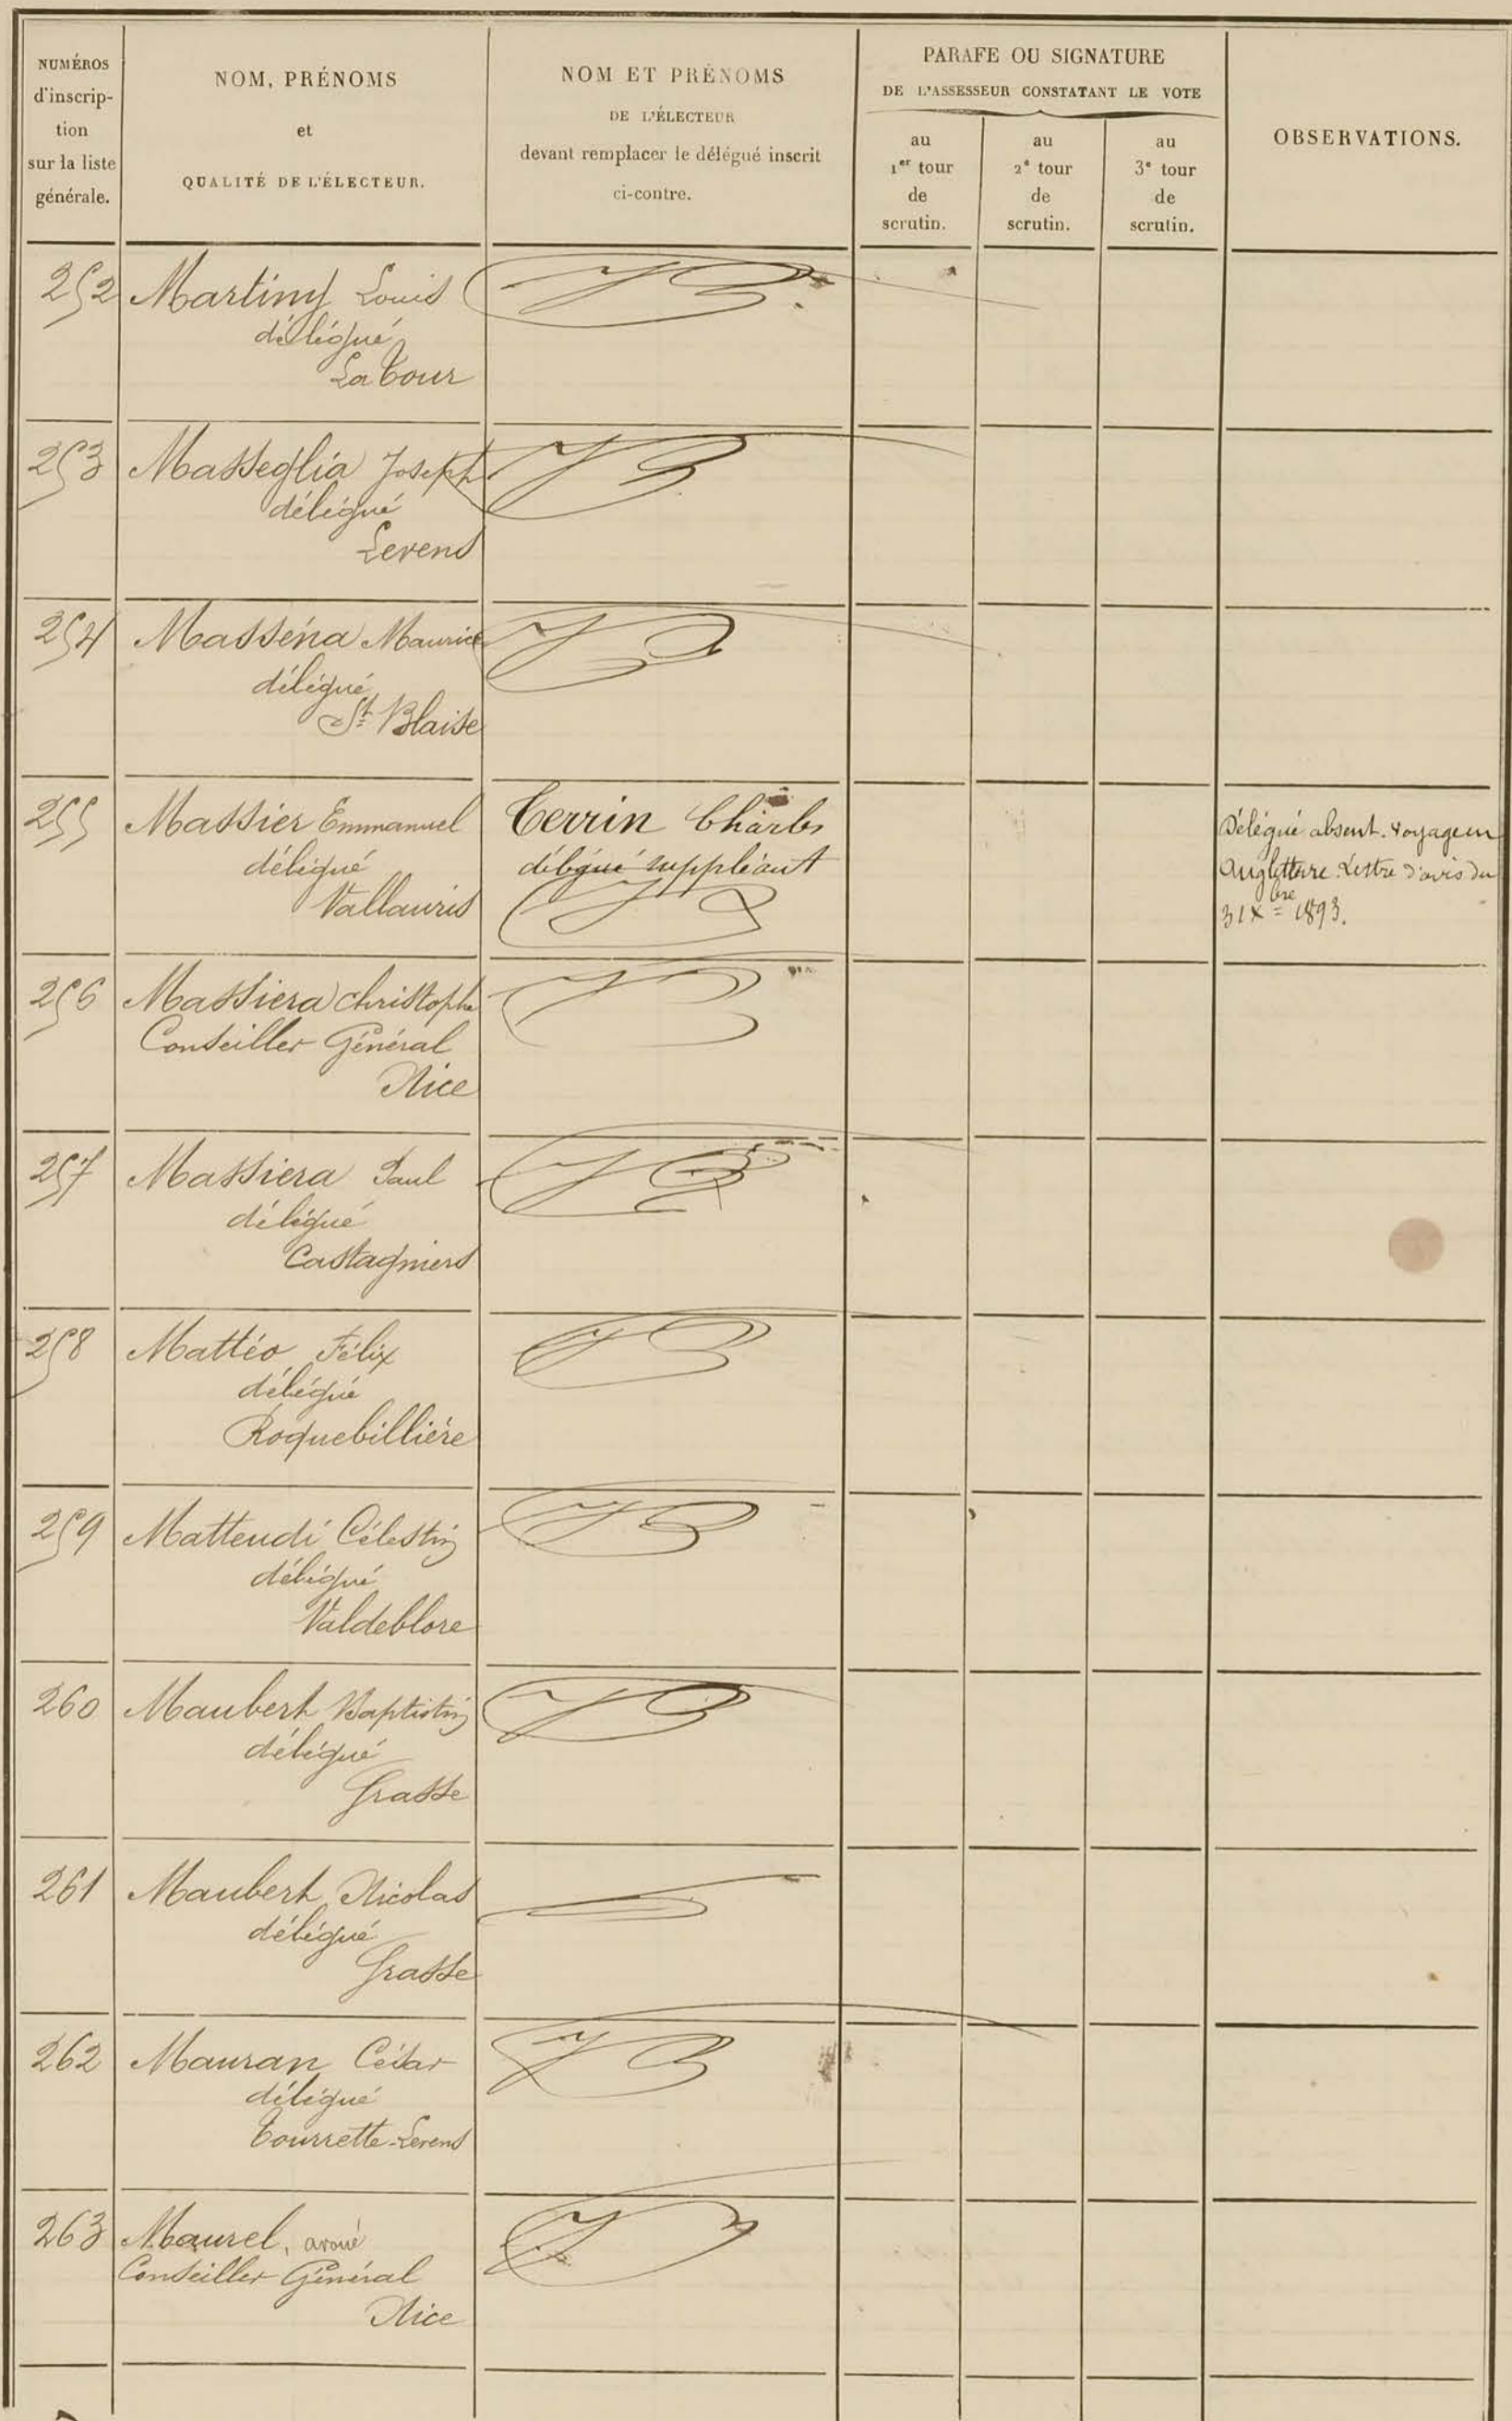 NUMÉROS
d'inscrip-
tion
sur la liste
générale.
NOM, PRÉNOMS
et
QUALITÉ DE L'ÉLECTEUR.
NOM ET PRÉNOMS
DE L'ÉLECTEUR
devant remplacer le délégué inscrit
ci-contre.
PARAFE OU SIGNATURE
DE L'ASSESSEUR CONSTATANT LE VOTE
au
1er tour
de
scrutin.
au
2e tour
de
scrutin.
au
3e tour
de
scrutin.
OBSERVATIONS.
252 Martiny Louis
délégué
La Tour
253 Masseglia Joseph
délégué
Levens
254 Masséna Maurice
délégué
St Blaise
255 Massier Emmanuel
délégué
Vallauris
Terrin Charles
délégué suppléant
Délégué absent. Voyage en
Angletterre. Lettre d'avis du
31 Xbre 1893.
256 Massiera Christophe
Conseiller Général
Nice
257 Massiera Paul
délégué
Castagniers
258 Mattéo Félix
délégué
Roquebillière
259 Matteudi Célestin
délégué
Valdeblore
260 Maubert Baptistin
délégué
Grasse
261 Maubert Nicolas
délégué
Grasse
262 Mauran César
délégué
Tourrette-Levens
263 Maurel, avoué
Conseiller Général
Nice